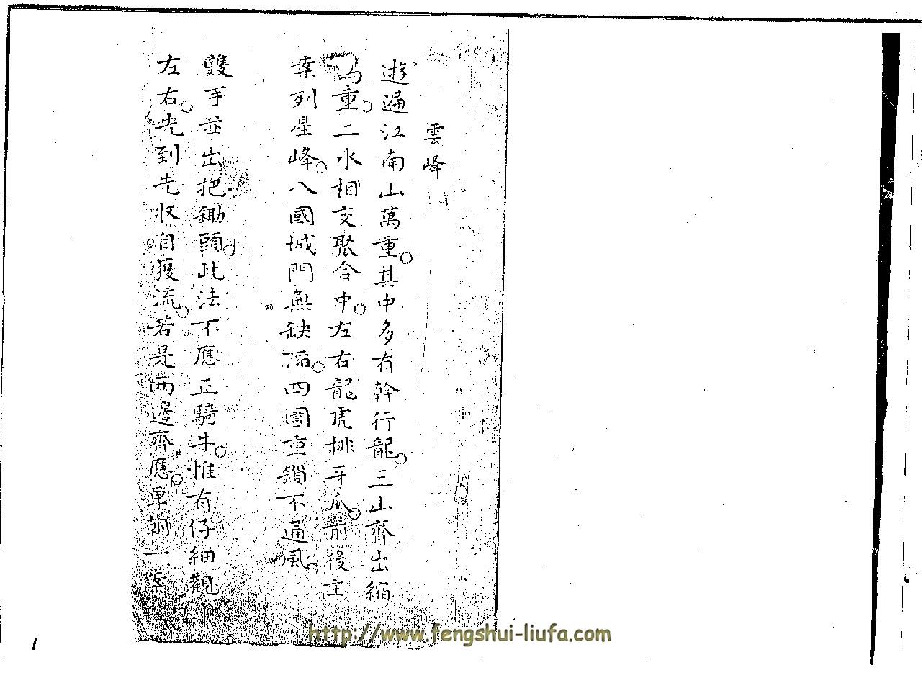 雲峰
遊遍江南山萬重。其中多有幹行龍。三山齊出縮
為重。二水相交聚合中。左右龍虎排牙爪。前後主
案列星峰。八國城門無缺。四圍重鎖不風。
雙手並出把鋤頭。此法不應正騎牛。惟有仔細觀
左右。先到先收自獲流。若是兩邊齊應。一
1
http://www.fengshui-liufa.com